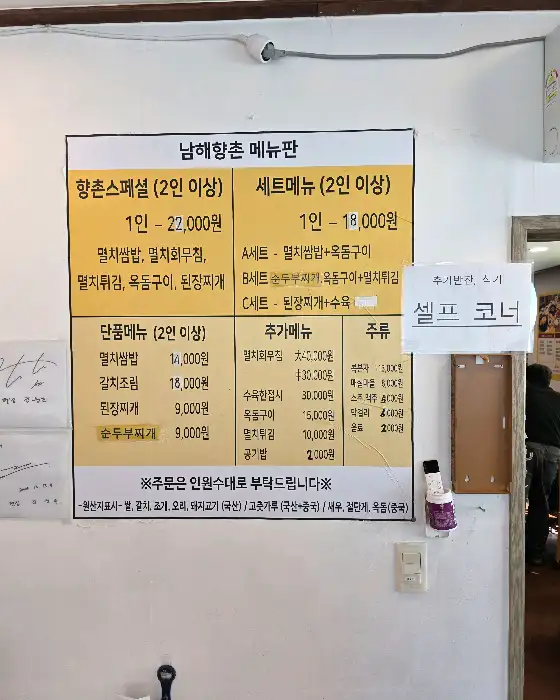 남해향촌 메뉴판
향촌스페셜 (2인 이상)
1인 - 22,000원
멸치쌈밥, 멸치회무침,
멸치튀김, 옥돔구이, 된장찌개
세트메뉴 (2인 이상)
1인 - 18,000원
A세트 - 멸치쌈밥+옥돔구이
B세트 순두부찌개,옥돔구이+멸치튀김
C세트 - 된장찌개+수육
단품메뉴 (2인 이상)
멸치쌈밥 14,000원
갈치조림 18,000원
된장찌개 9,000원
순두부찌개 9,000원
추가메뉴
멸치회무침 大40,000원
中30,000원
수육한접시 30,000원
옥돔구이 15,000원
멸치튀김 10,000원
공기밥 2,000원
주류
복분자 15,000원
마실마을 8,000원
소주,맥주
막걸리
음료 2,000원
※주문은 인원수대로 부탁드립니다※
-원산지표시- 쌀, 갈치, 조기, 오리, 돼지고기 (국산) / 고춧가루 (국산+중국) / 새우, 절단게, 옥돔(중국)
추가반찬, 식기
셀프 코너